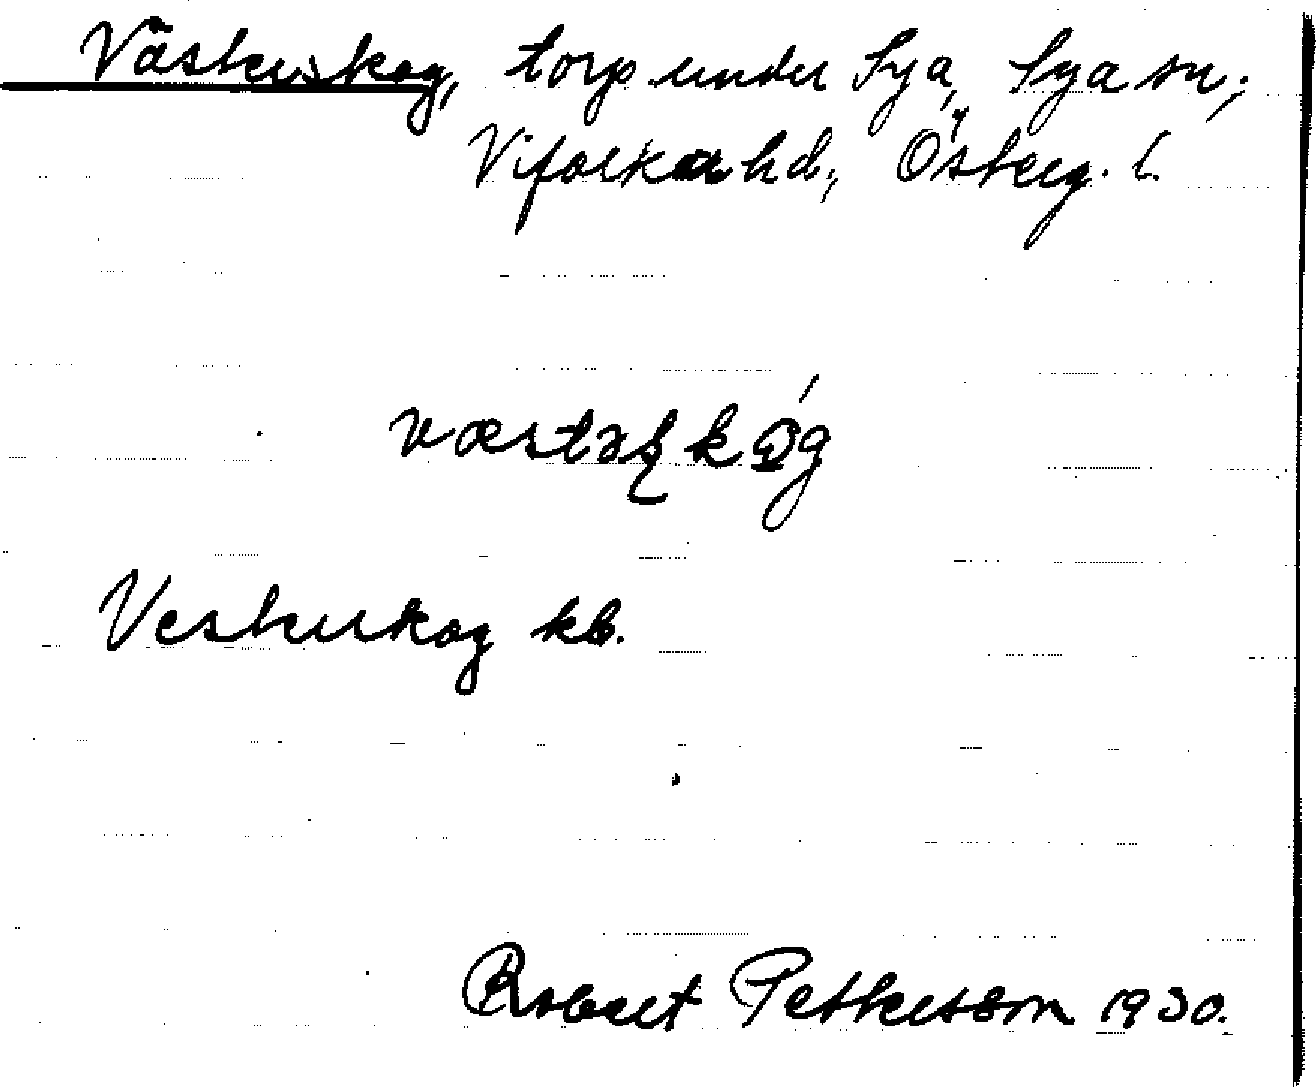 Västerskog, torp under Sya, Sya sn,
Vifolka hd, Österg. l.
væstəʂkǫ́g
Vesterskog kb.
Robert Pettersson 1930.